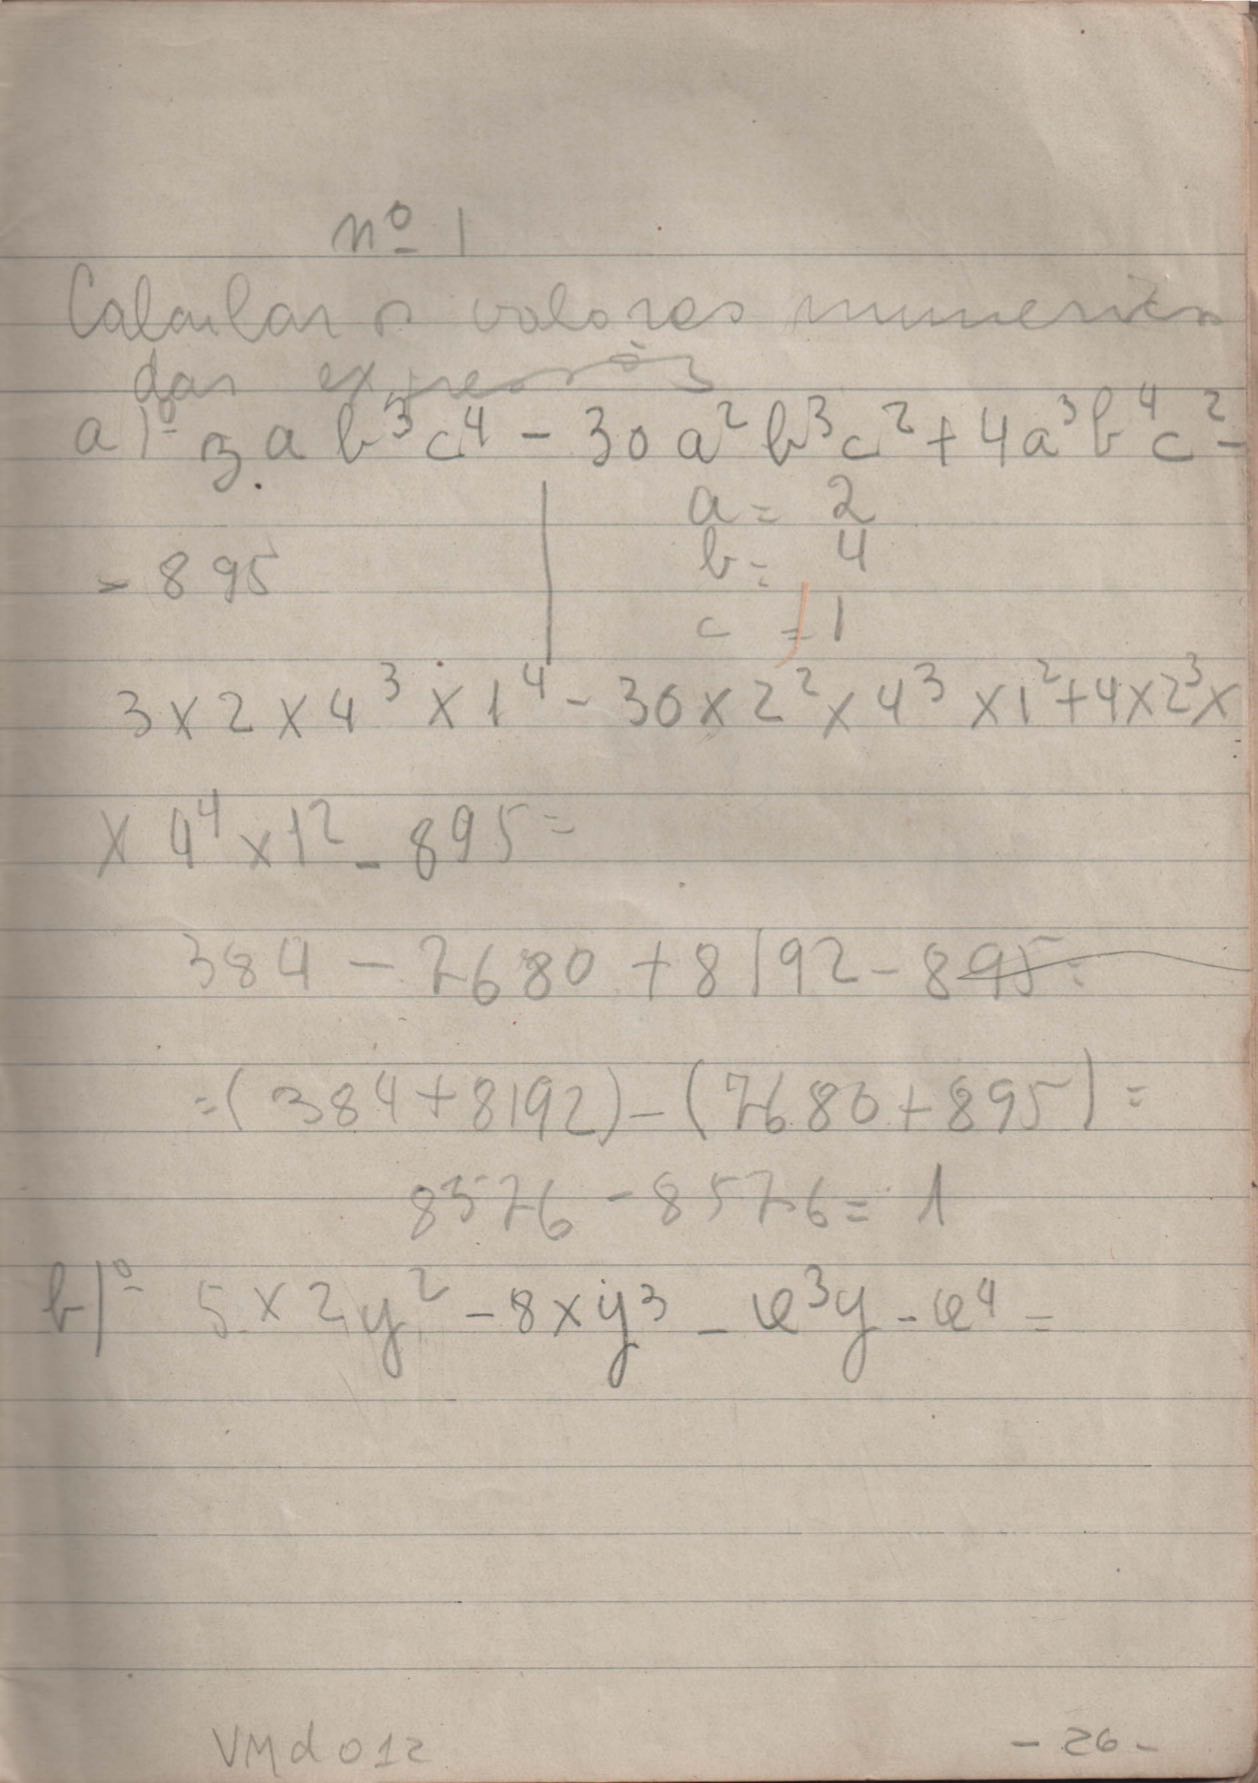 nº 1
Calcular os valores numericos
das expressões
a)º 3ab³c⁴ - 30a²b³c² + 4a³b⁴c² -
- 895
a = 2
b = 4
c = 1
3 x 2 x 4³ x 1⁴ - 30 x 2² x 4³ x 1² + 4 x 2³ x
x 4⁴ x 1² - 895 =
384 - 7680 + 8192 - 895 =
= (384 + 8192) - (7680 + 895) =
8576 - 8576 = 1
b)º 5 x 2y² - 8xy³ - x³y - x⁴ =
VMd012
- 26 -